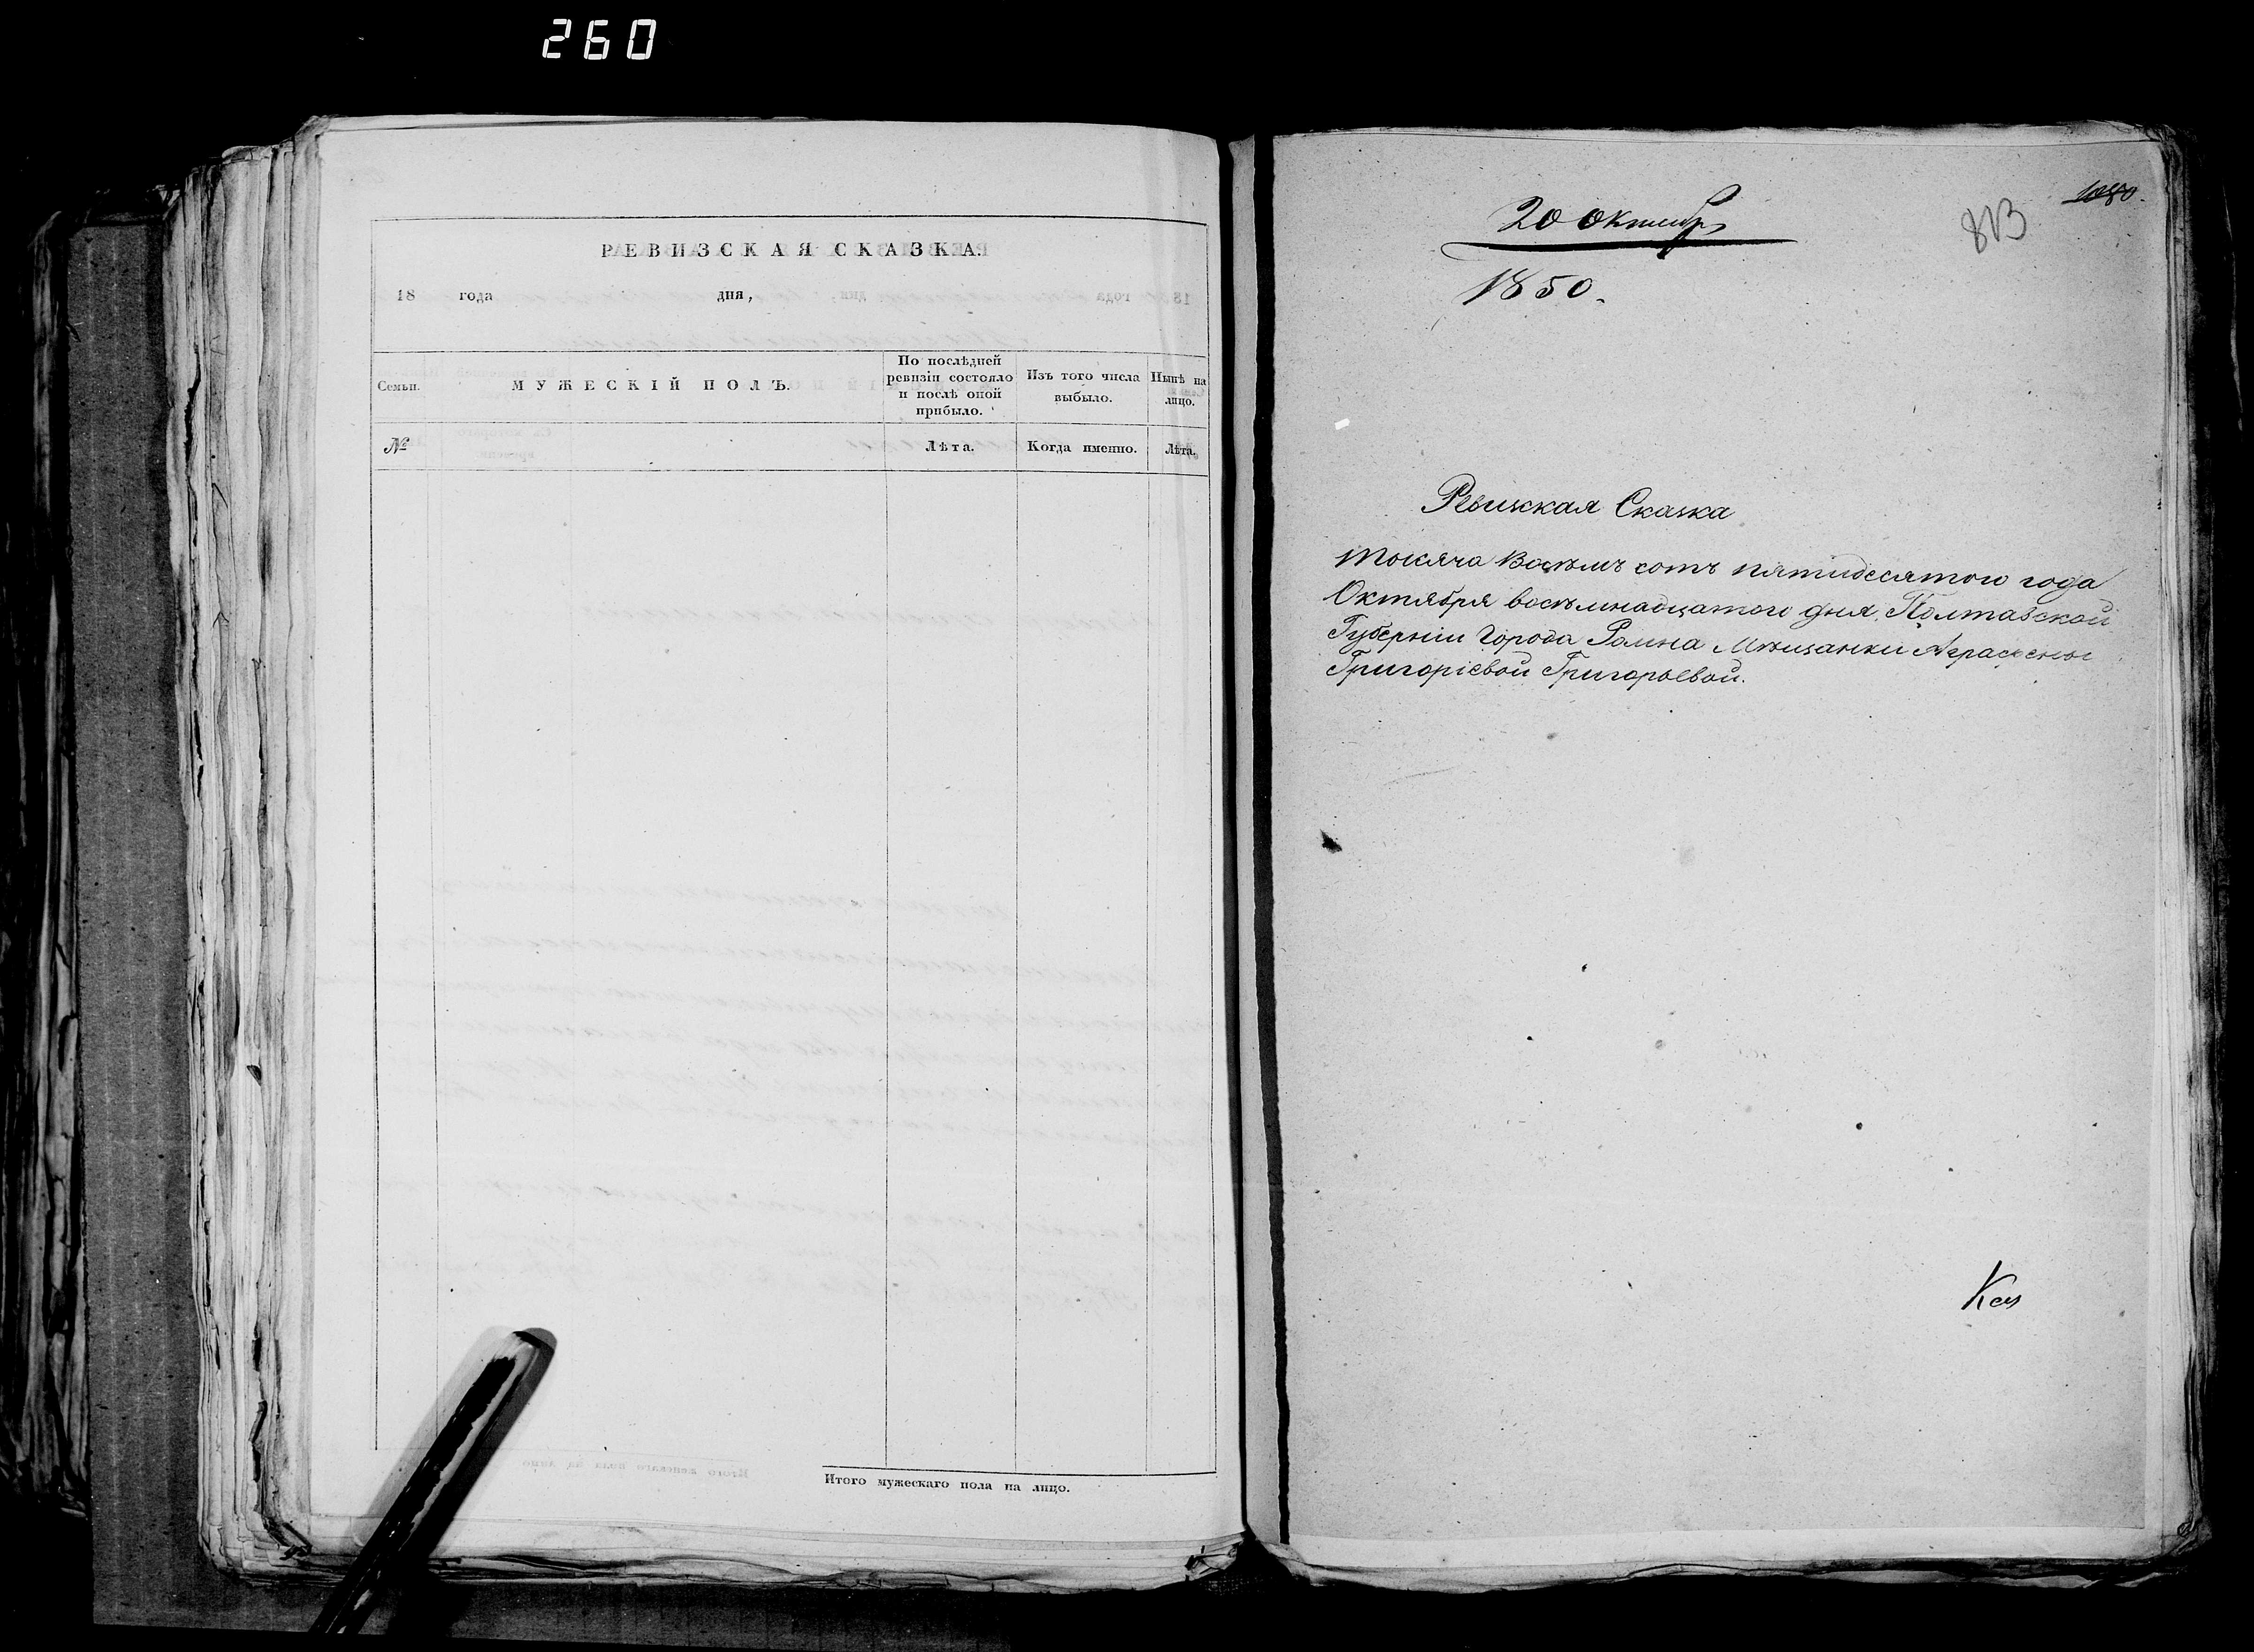 260
РЕВИЗСКАЯ СКАЗКА.
18 года дня,
Семьи.
МУЖЕСКІЙ ПОЛЪ.
По послѣдней
ревизіи состояло
и послѣ оной
прибыло.
Изъ того числа
выбыло.
Нынѣ на
лицо.
№
Лѣта.
Когда именно.
Лѣта.
Итого мужескаго пола на лицо.
1080.
813
20 Октября
1850.
Ревизская Сказка
тысяча Восѣмъ сотъ пятидесятого года
Октября восѣмнадцатого дня, Полтавской
Губерніи Города Ромна Мѣщанки Аграфены
Григоріевой Григорьевой.